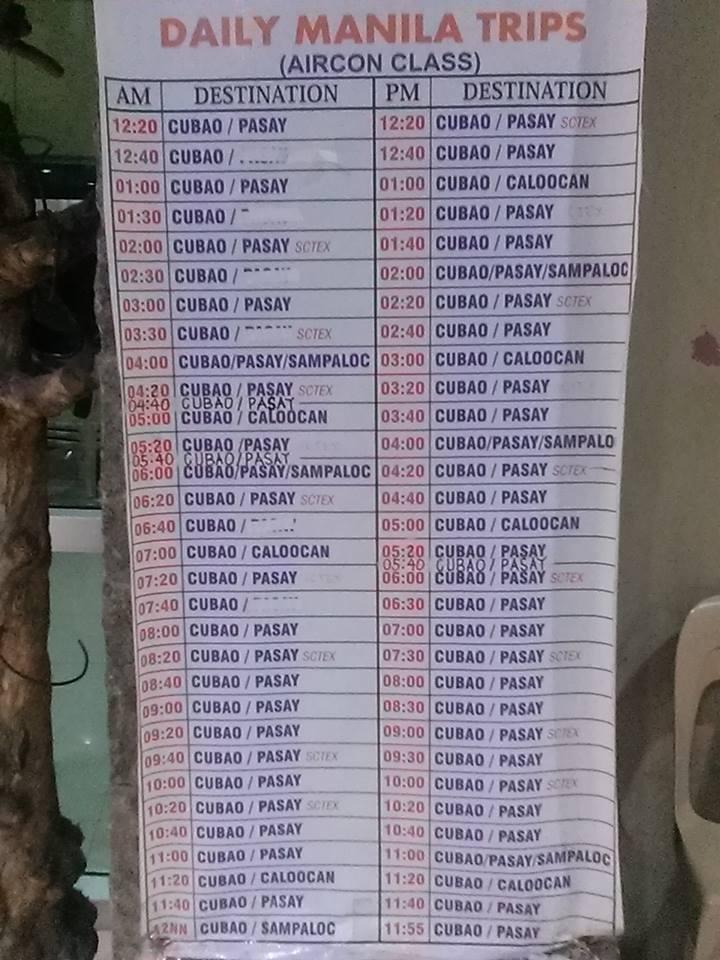 DAILY MANILA TRIPS
(AIRCON CLASS)
AM DESTINATION PM DESTINATION
12:20 CUBAO / PASAY 12:20 CUBAO / PASAY SCTEX
12:40 CUBAO / 12:40 CUBAO / PASAY
01:00 CUBAO / PASAY 01:00 CUBAO / CALOOCAN
01:30 CUBAO / 01:20 CUBAO / PASAY
02:00 CUBAO / PASAY SCTEX 01:40 CUBAO / PASAY
02:30 CUBAO / 02:00 CUBAO/PASAY/SAMPALOC
03:00 CUBAO / PASAY 02:20 CUBAO / PASAY SCTEX
03:30 CUBAO / SCTEX 02:40 CUBAO / PASAY
04:00 CUBAO/PASAY/SAMPALOC 03:00 CUBAO / CALOOCAN
04:20 CUBAO / PASAY SCTEX 03:20 CUBAO / PASAY
04:40 CUBAO / PASAY
05:00 CUBAO / CALOOCAN 03:40 CUBAO / PASAY
05:20 CUBAO /PASAY 04:00 CUBAO/PASAY/SAMPALO
05:40 CUBAO / PASAY
06:00 CUBAO/PASAY/SAMPALOC 04:20 CUBAO / PASAY SCTEX
06:20 CUBAO / PASAY SCTEX 04:40 CUBAO / PASAY
06:40 CUBAO / 05:00 CUBAO / CALOOCAN
07:00 CUBAO / CALOOCAN 05:20 CUBAO / PASAY
05:40 CUBAO / PASAY
07:20 CUBAO / PASAY 06:00 CUBAO / PASAY SCTEX
07:40 CUBAO / 06:30 CUBAO / PASAY
08:00 CUBAO / PASAY 07:00 CUBAO / PASAY
08:20 CUBAO / PASAY SCTEX 07:30 CUBAO / PASAY SCTEX
08:40 CUBAO / PASAY 08:00 CUBAO / PASAY
09:00 CUBAO / PASAY 08:30 CUBAO / PASAY
09:20 CUBAO / PASAY 09:00 CUBAO / PASAY SCTEX
09:40 CUBAO / PASAY SCTEX 09:30 CUBAO / PASAY
10:00 CUBAO / PASAY 10:00 CUBAO / PASAY SCTEX
10:20 CUBAO / PASAY SCTEX 10:20 CUBAO / PASAY
10:40 CUBAO / PASAY 10:40 CUBAO / PASAY
11:00 CUBAO / PASAY 11:00 CUBAO/PASAY/SAMPALOC
11:20 CUBAO / CALOOCAN 11:20 CUBAO / CALOOCAN
11:40 CUBAO / PASAY 11:40 CUBAO / PASAY
12NN CUBAO / SAMPALOC 11:55 CUBAO / PASAY